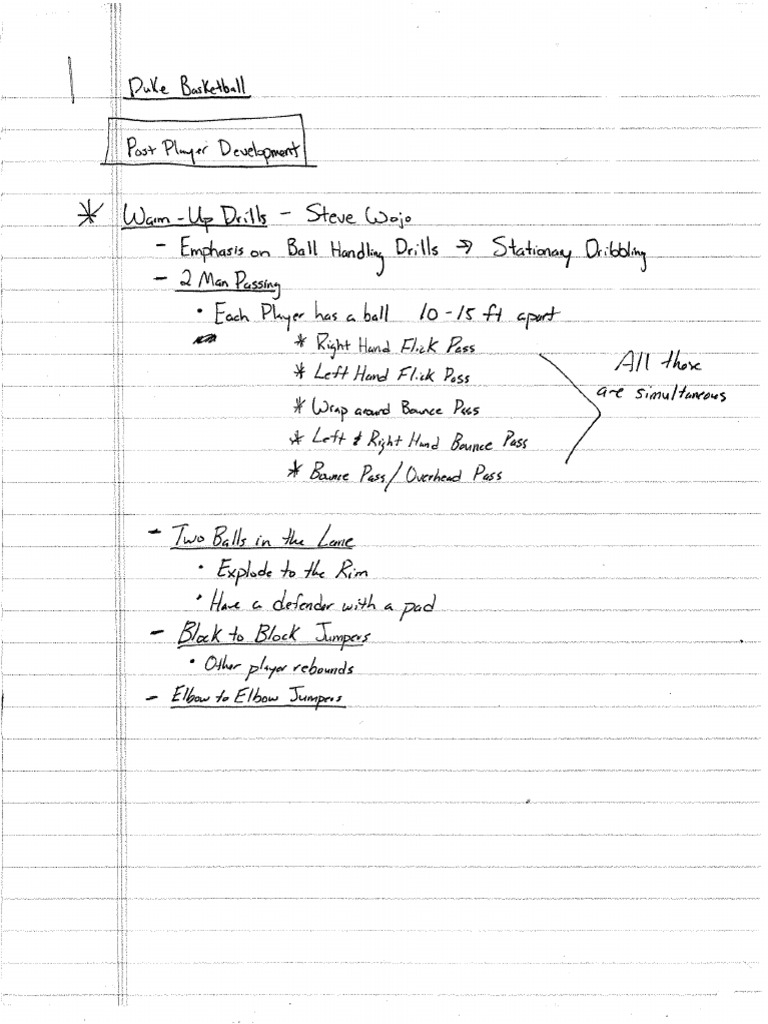 Duke Basketball
Post Player Development
* Warm-Up Drills - Steve Wojo
- Emphasis on Ball Handling Drills → Stationary Dribbling
- 2 Man Passing
• Each Player has a ball 10-15 ft apart
* Right Hand Flick Pass
* Left Hand Flick Pass
* Wrap around Bounce Pass
* Left & Right Hand Bounce Pass
* Bounce Pass / Overhead Pass
All these
are simultaneous
- Two Balls in the Lane
• Explode to the Rim
• Have a defender with a pad
- Block to Block Jumpers
• Other player rebounds
- Elbow to Elbow Jumpers